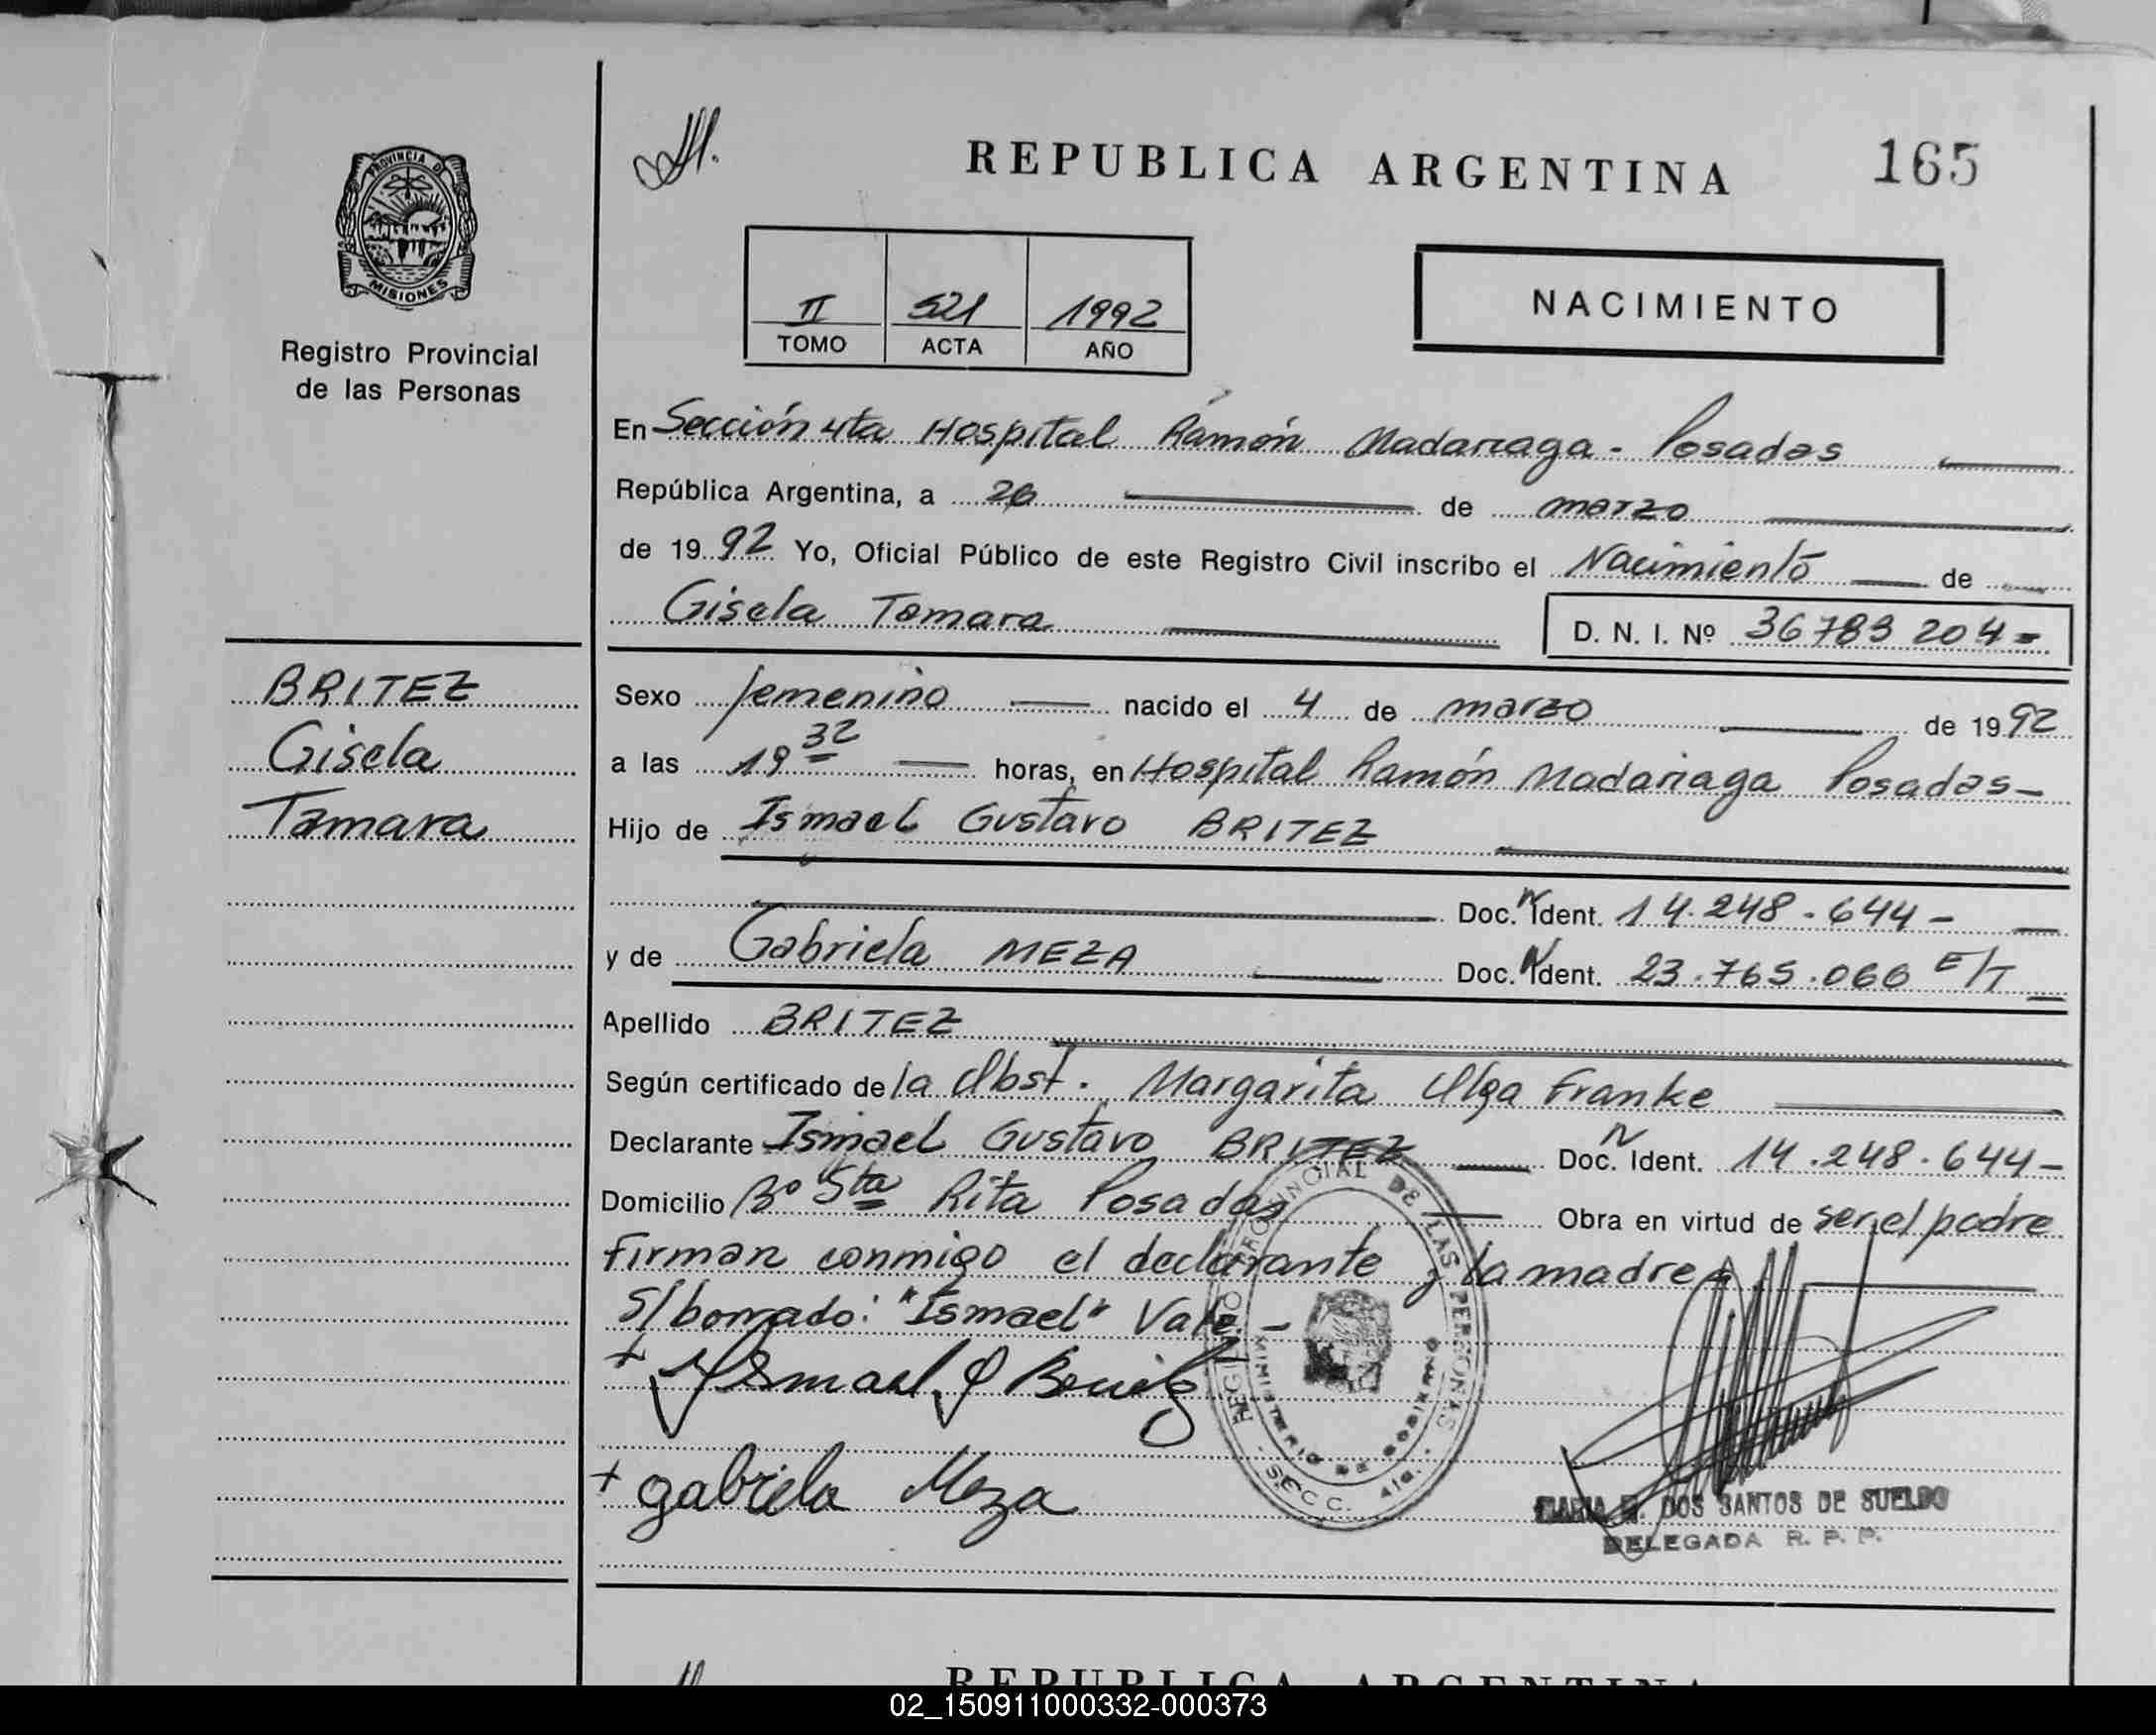 PROVINCIA DE
MISIONES
Registro Provincial
de las Personas
BRITEZ
Gisela
Tamara
REPUBLICA ARGENTINA
165
II 521 1992
TOMO ACTA AÑO
NACIMIENTO
En Sección 4ta Hospital Ramón Madariaga - Posadas
República Argentina, a 26 de marzo
de 1992 Yo, Oficial Público de este Registro Civil inscribo el Nacimiento de
Gisela Tamara D. N. I. Nº 36783204=
Sexo femenino nacido el 4 de marzo de 1992
a las 19 32 horas, en Hospital Ramón Madariaga Posadas-
Hijo de Ismael Gustavo BRITEZ
Doc. N Ident. 14.248.644-
y de Gabriela MEZA Doc. N Ident. 23.765.066 E/T
Apellido BRITEZ
Según certificado de la Obst. Margarita Olga Franke
Declarante Ismael Gustavo BRITEZ Doc. N Ident. 14.248.644-
Domicilio Bº Sta Rita Posadas Obra en virtud de ser el padre
Firman conmigo el declarante y la madre
S/borrado: "Ismael" Vale -
+ Ismael G
+ gabriela Meza
REGISTRO PROVINCIAL DE LAS PERSONAS
MINISTERIO DE GOBIERNO
SECC. 4ta.
MARIA DOS SANTOS DE SUELDO
DELEGADA R. P. P.
REPUBLICA ARGENTINA
02_150911000332-000373